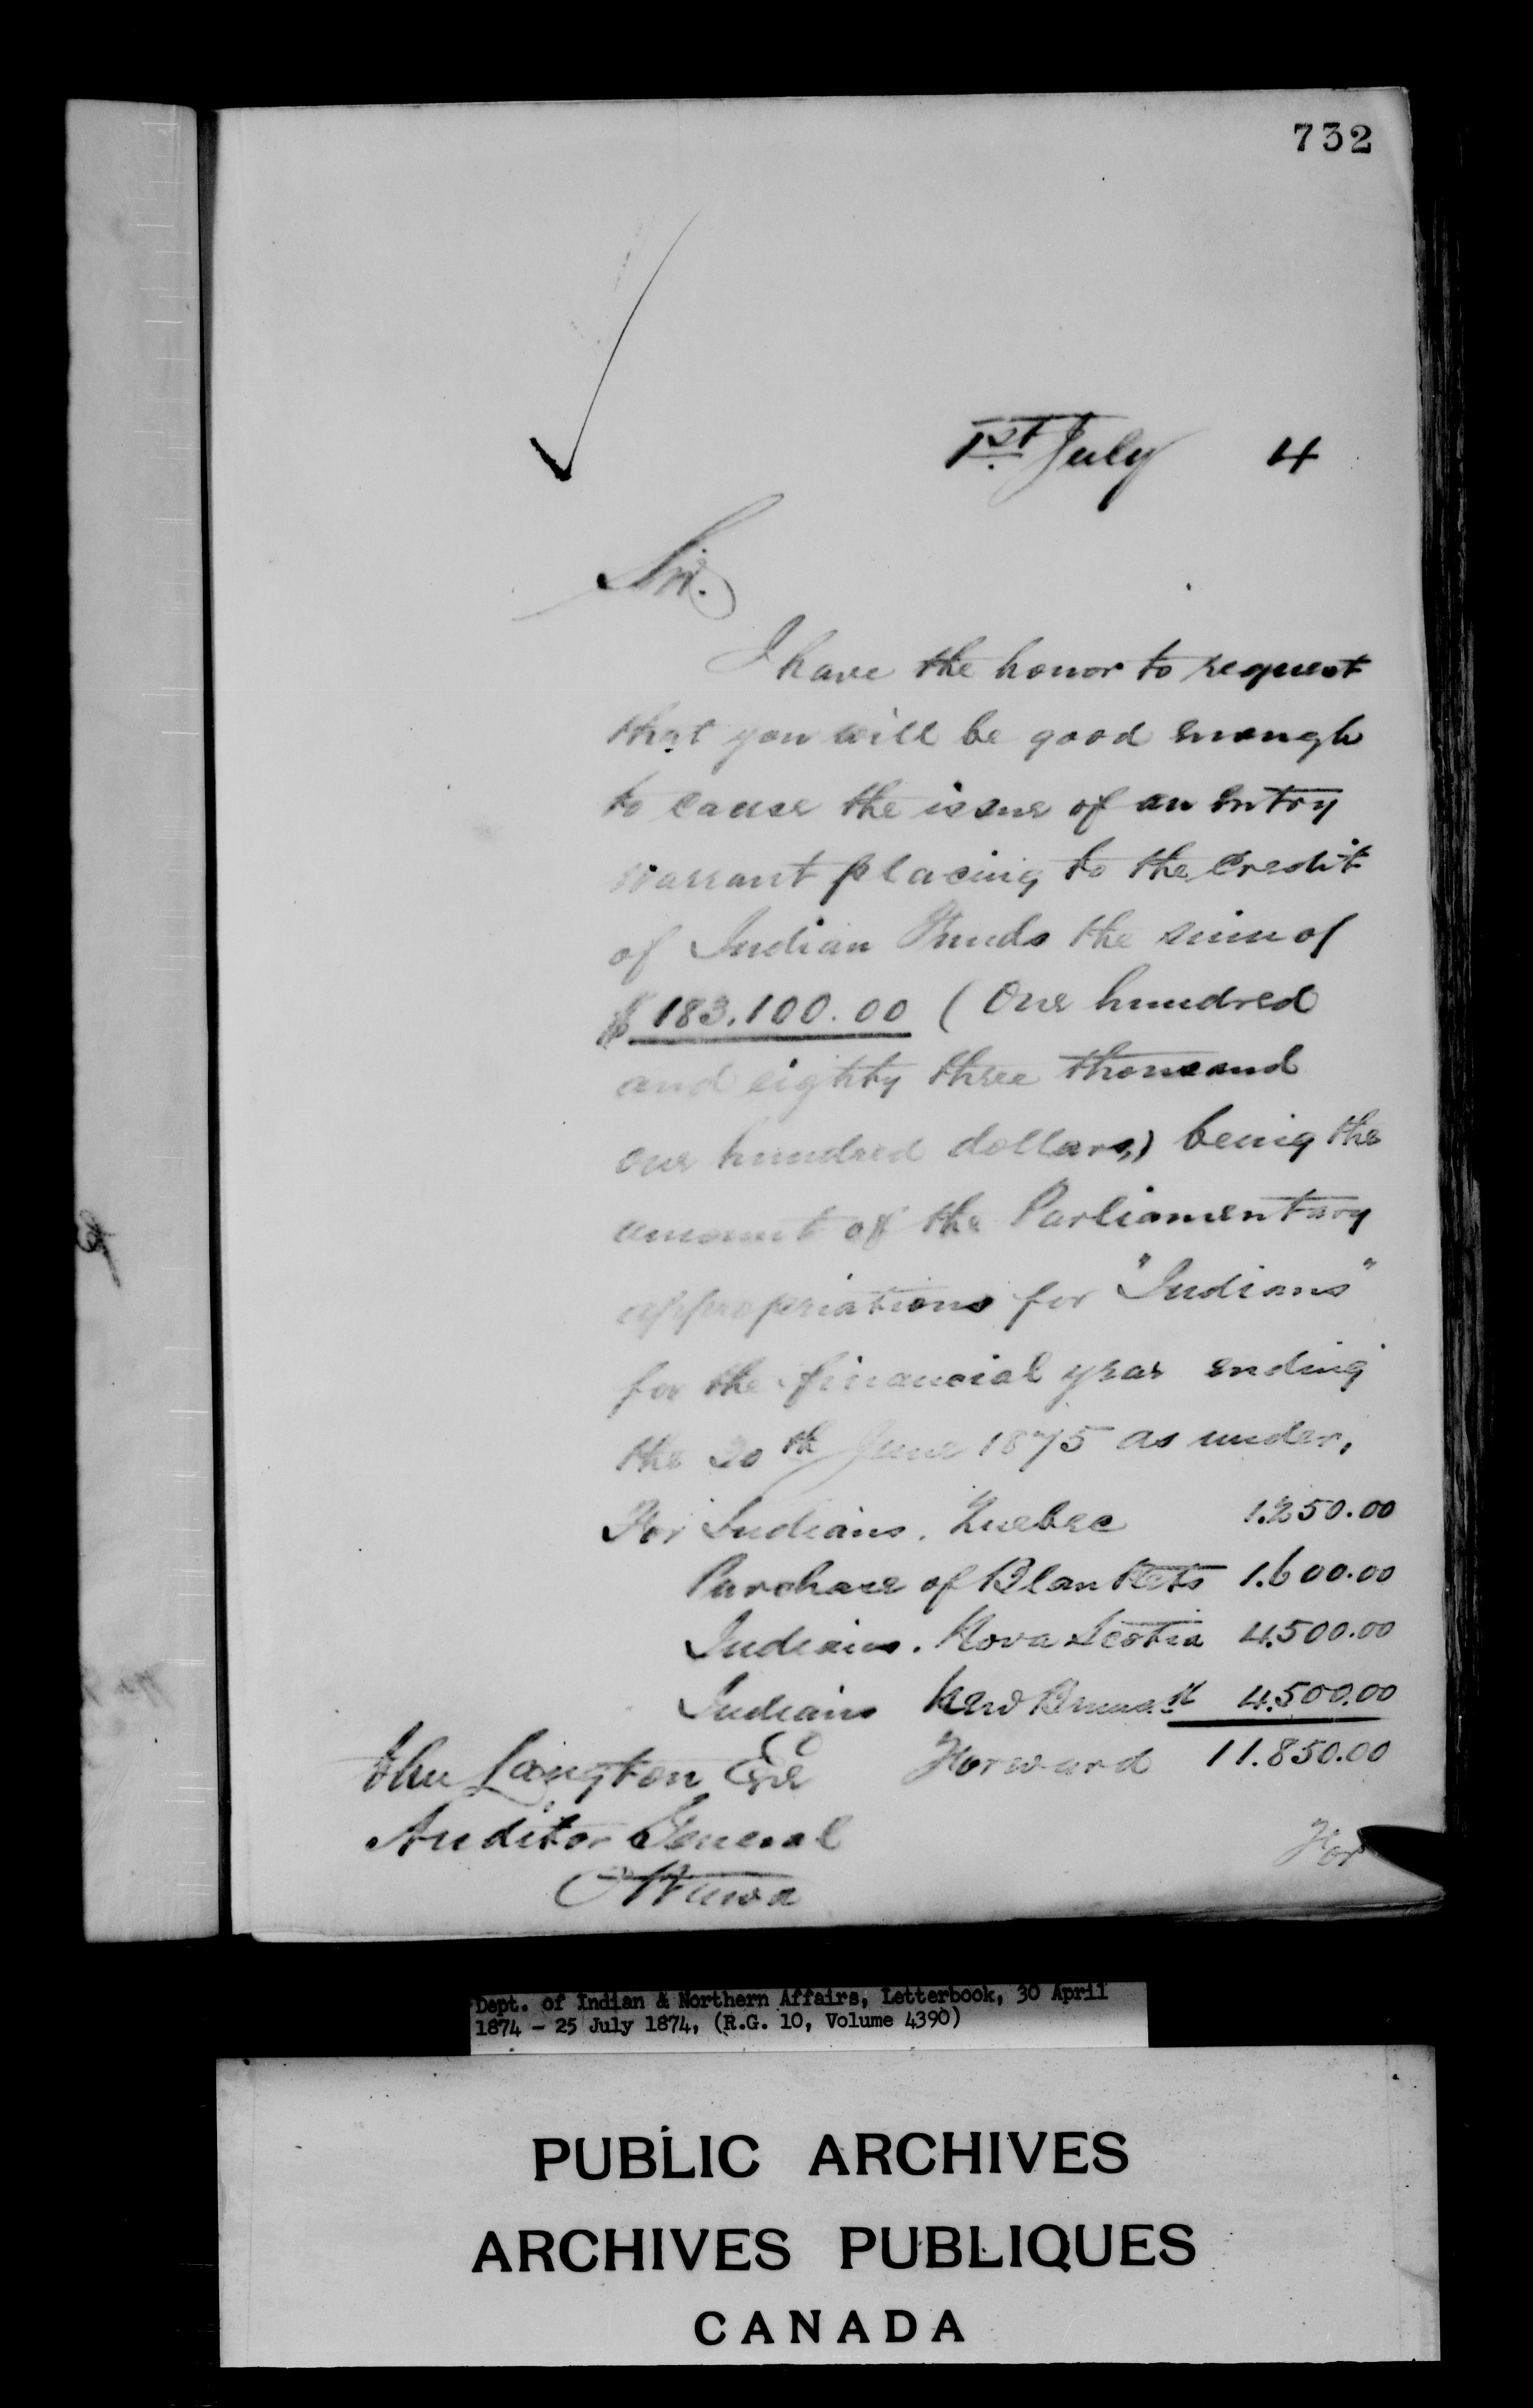 732
1st July 4
Sir.
I have the honor to request
that you will be good enough
to cause the issue of an Entry
Warrant placing to the Credit
of Indian Funds the sum of
$183.100.00 (One hundred
and eighty three thousand
one hundred dollars,) being the
amount of the Parliamentary
appropriations for "Indians"
for the financial year ending
the 30th June 1875 as under,
For Indians. Quebec 1.250.00
Purchase of Blankets 1.600.00
Indians. Nova Scotia 4.500.00
Indians New Brunsk 4.500.00
Forward 11.850.00
John Langton Esqr
Auditor General
Ottawa
For
Dept. of Indian & Northern Affairs, Letterbook, 30 April
1874 - 25 July 1874, (R.G. 10, Volume 4390)
PUBLIC ARCHIVES
ARCHIVES PUBLIQUES
CANADA